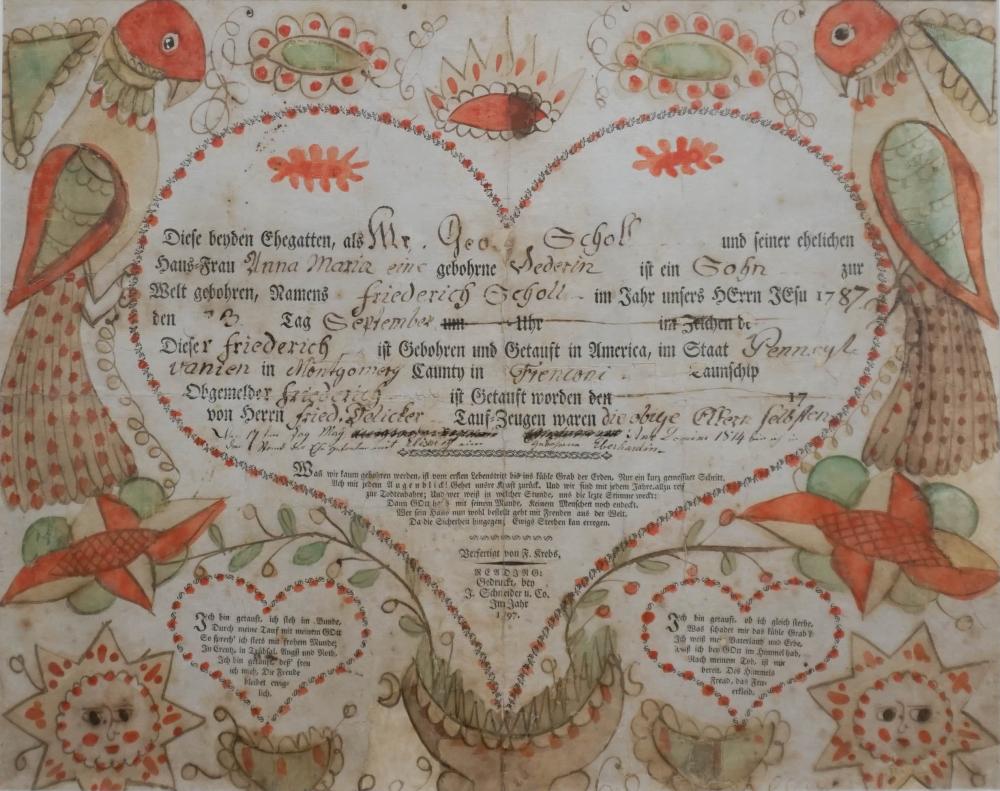 Diese beyden Ehegatten, als Mr. Georg Scholl und seiner ehelichen
Haus-Frau Anna Maria eine gebohrne Dederin ist ein Sohn zur
Welt gebohren, Namens Friederich Scholl im Jahr unsers HErrn JEsu 1787
den 3 Tag September um Uhr im Zeichen de
Dieser Friederich ist Gebohren und Getauft in America, im Staat Pennsyl
vanien in Montgomery Caunty in Frenconi Taunschip
Obgemelder Friederich ist Getauft worden den 17
von Herrn Fried. Delicker Tauf-Zeugen waren die obige Eltern selbsten
1814
Was wir kaum gebohren werden, ist vom ersten Lebenstritt bis ins kühle Grab der Erden. Nur ein kurz gemeßner Schritt.
Ach mit jedem Augenblick! Gehet unsre Kraft zurück. Und wir sind mit jedem Jahre. allzu reif
zur Todtenbahre; Und wer weiß in welcher Stunde, uns die lezte Stimme weckt;
Dann GOtt hat's mit seinem Munde, Keinem Menschen noch endeckt.
Wer sein Haus nun wohl bestellt geht mit Freuden aus der Welt.
Da die Sicherheit hingegen; Ewigs Sterben kan erregen.
Verfertigt von F. Krebs.
READING:
Gedruckt, bey
J. Schneider u. Co.
Im Jahr
1797.
Ich bin getauft, ich steh im Bunde,
Durch meine Tauf mit meinem GOtt
So sprech' ich stets mit frohem Munde;
In Creutz, in Trübsal, Angst und Noth,
Ich bin getauft, deß' freu
ich mich, Die Freude
bleibet ewig-
lich.
Ich bin getauft, ob ich gleich sterbe,
Was schadet mir das kühle Grab?
Ich weiß mein Vaterland und Erbe,
Daß ich bey GOtt im Himmel hab,
Nach meinem Tod, ist mir
bereit, Des Himmels
Freud, das Feu-
erkleid.